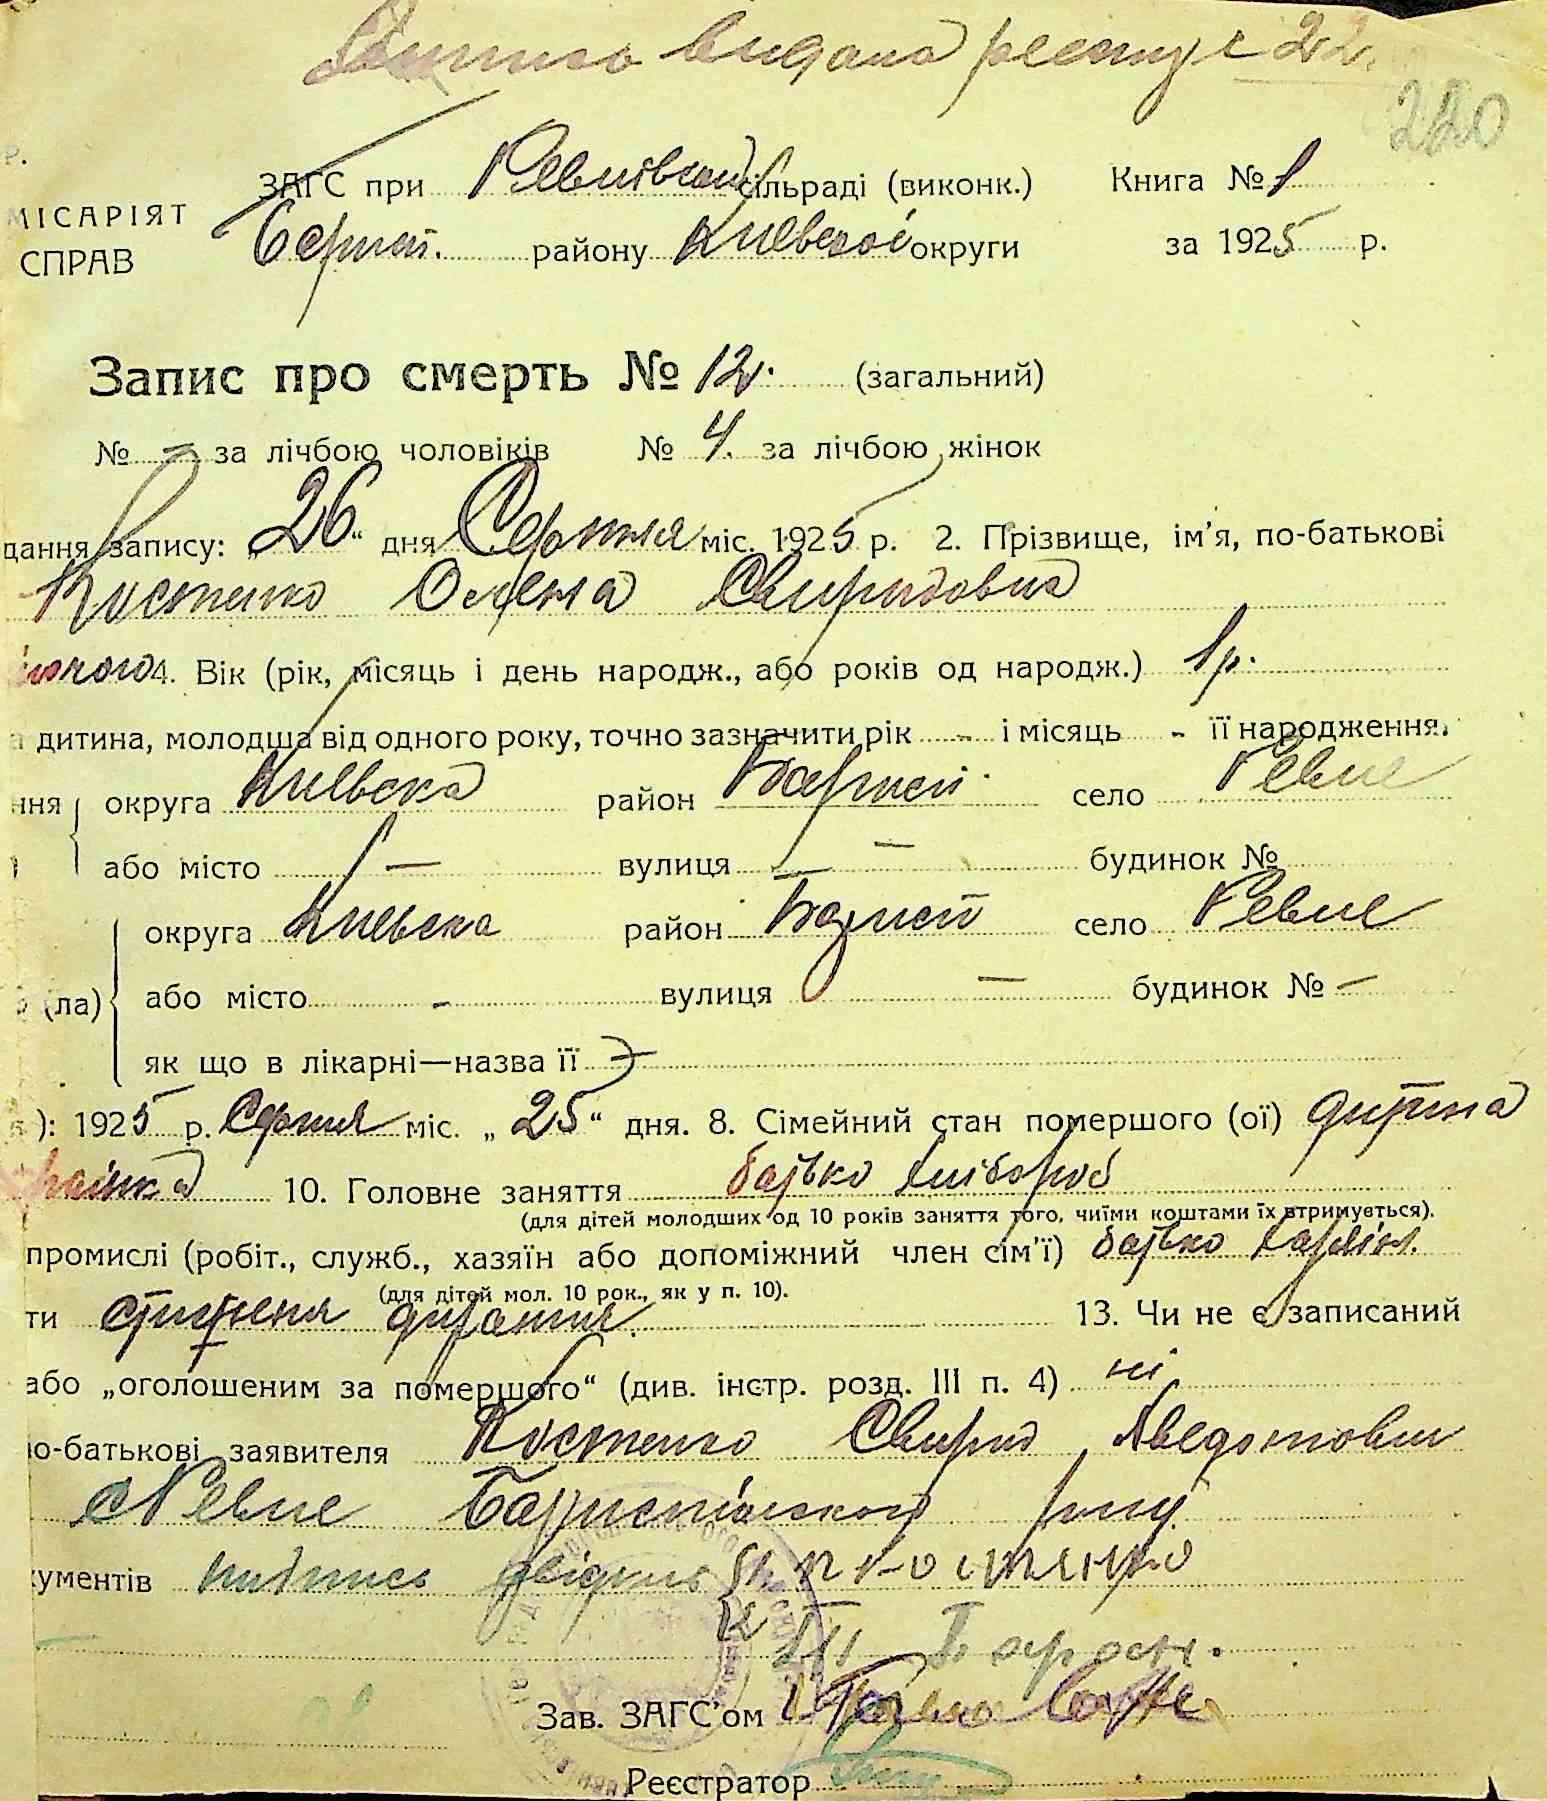 Випись видана реєстр № 22.
220
Р.
ЗАГС при Ревнівській сільраді (виконк.) Книга № 1
МІСАРІЯТ
Бориспіл. району Київської округи за 1925 р.
СПРАВ
Запис про смерть № 12. (загальний)
№ - за лічбою чоловіків № 4. за лічбою жінок
дання запису: „26“ дня Серпня міс. 1925 р. 2. Прізвище, ім'я, по-батькові
Костенко Олена Свиридовна
4. Вік (рік, місяць і день народж., або років од народж.) 1 р.
а дитина, молодша від одного року, точно зазначити рік - і місяць - її народження.
ння округа Киевска район Борисп. село Ревне
або місто — вулиця — будинок №
округа Киевска район Борисп. село Ревне
(ла) або місто - вулиця — будинок № —
як що в лікарні—назва її —
): 1925 р. Серпня міс. „25“ дня. 8. Сімейний стан помершого (ої) дитина
10. Головне заняття батько хлібороб
(для дітей молодших од 10 років заняття того, чиїми коштами їх втримується).
промислі (робіт., служб., хазяїн або допоміжний член сім'ї) батько хазяїн.
(для дітей мол. 10 рок., як у п. 10).
ти стиснення дихання. 13. Чи не є записаний
або „оголошеним за помершого“ (див. інстр. розд. III п. 4) ні
ю-батькові заявителя Костенко Свирид Авсдотович
с Ревне Бориспільского р-ну.
кументів підпись
Зав. ЗАГС'ом
Реєстратор